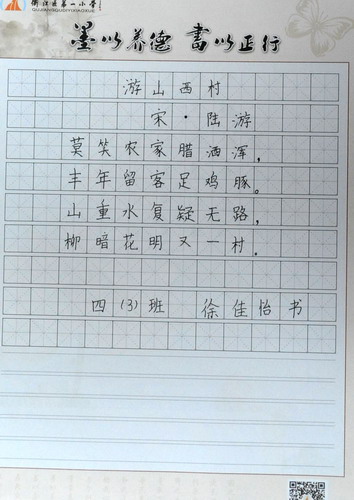 衢江区第一小学
QUJIANGQUDIYIXIAOXUE
墨以养德 书以正行
游山西村
宋·陆游
莫笑农家腊酒浑，
丰年留客足鸡豚。
山重水复疑无路，
柳暗花明又一村。
四(3)班 徐佳怡书